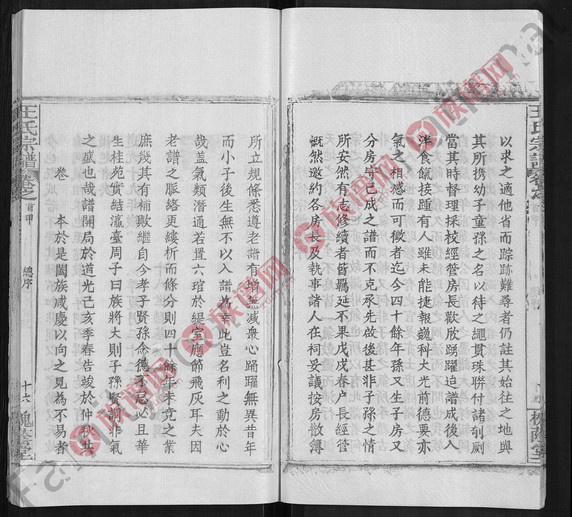 以求之適他省而踪跡難尋者仍註其始徃之地與
其所携幼子童孫之名以待之繩貫珠聯付諸剞劂
當其時督理採校經管房長歡欣踴躍迨譜成後入
泮食餼接踵有人雖未能捷報巍科大光前德要亦
氣之相感而可徵者迄今四十餘年孫又生子房又
分房守己成之譜而不克承先啟後甚非子孫之情
所安然有志修續者皆羈延不果戊戌春户長經管
慨然邀約各房長及執事諸人在祠妥議按房散簿
所立規條悉遵老譜有增無減衆心踴躍無異昔年
而小子後生無不以入譜為幸此豈名利之動於心
哉蓋氣類潛通若置六琯於緹室應節飛灰耳夫因
老譜之脈絡更縷析而條分則四十餘年未竟之業
庶幾其有補歟繼自今孝子賢孫令德
必且華
生桂苑實結瀛臺周子曰族將大則子孫賢
非氣
之盛也哉譜開局於道光己亥季春告竣於仲秋
卷
本於是闔族咸慶以向之見為不易者
王氏宗譜
卷之首甲
總序
十六
槐蔭堂
王氏宗譜
槐蔭堂
族譜网